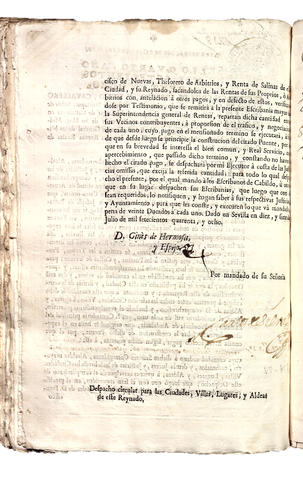 cisco de Nuevas, Thesorero de Arbitrios, y Renta de Salinas de esta
Ciudad, y su Reynado, sacandolos de las Rentas de sus Proprios, ò Ar-
bitrios con antelacion à otros pagos, y en defecto de estos, verifica-
dos por Testimonio, que se remitirà à la presente Escribania mayor de
la Superintendencia general de Rentas, repartan dicha cantidad entre
sus Vecinos contribuyentes, à proporcion de su trafico, y negociacion
de cada uno; cuyo pago en el mencionado termino se executarà,
de que desde luego se principie la construccion del citado Puente, por-
que en su brevedad se interessa el bien comun, y Real Servicio, con
apercebimiento, que passado dicho termino, y constando no haverse
hecho el citado pago, se despacharà por mi Executor à costa de las Jus-
ticias omissas, que exija la referida cantidad; para todo lo qual despa-
cho el presente, por el qual mando à los Escribanos de Cabildo, ò en
que en su lugar despachen sus Escribanias, que luego que con el
sean requeridos, lo notifiquen, y hagan saber à sus respectivas Justicias,
y Ayuntamiento, para que les conste, y executen lo que và mandado,
pena de veinte Ducados à cada uno. Dado en Sevilla en diez, y
Julio de mil setecientos quarenta, y ocho.
D. Ginès de Hermosa,
y Espejo
Por mandado de su Señoria
Despacho circular para las Ciudades, Villas, Lugares, y Aldeas
de este Reynado,